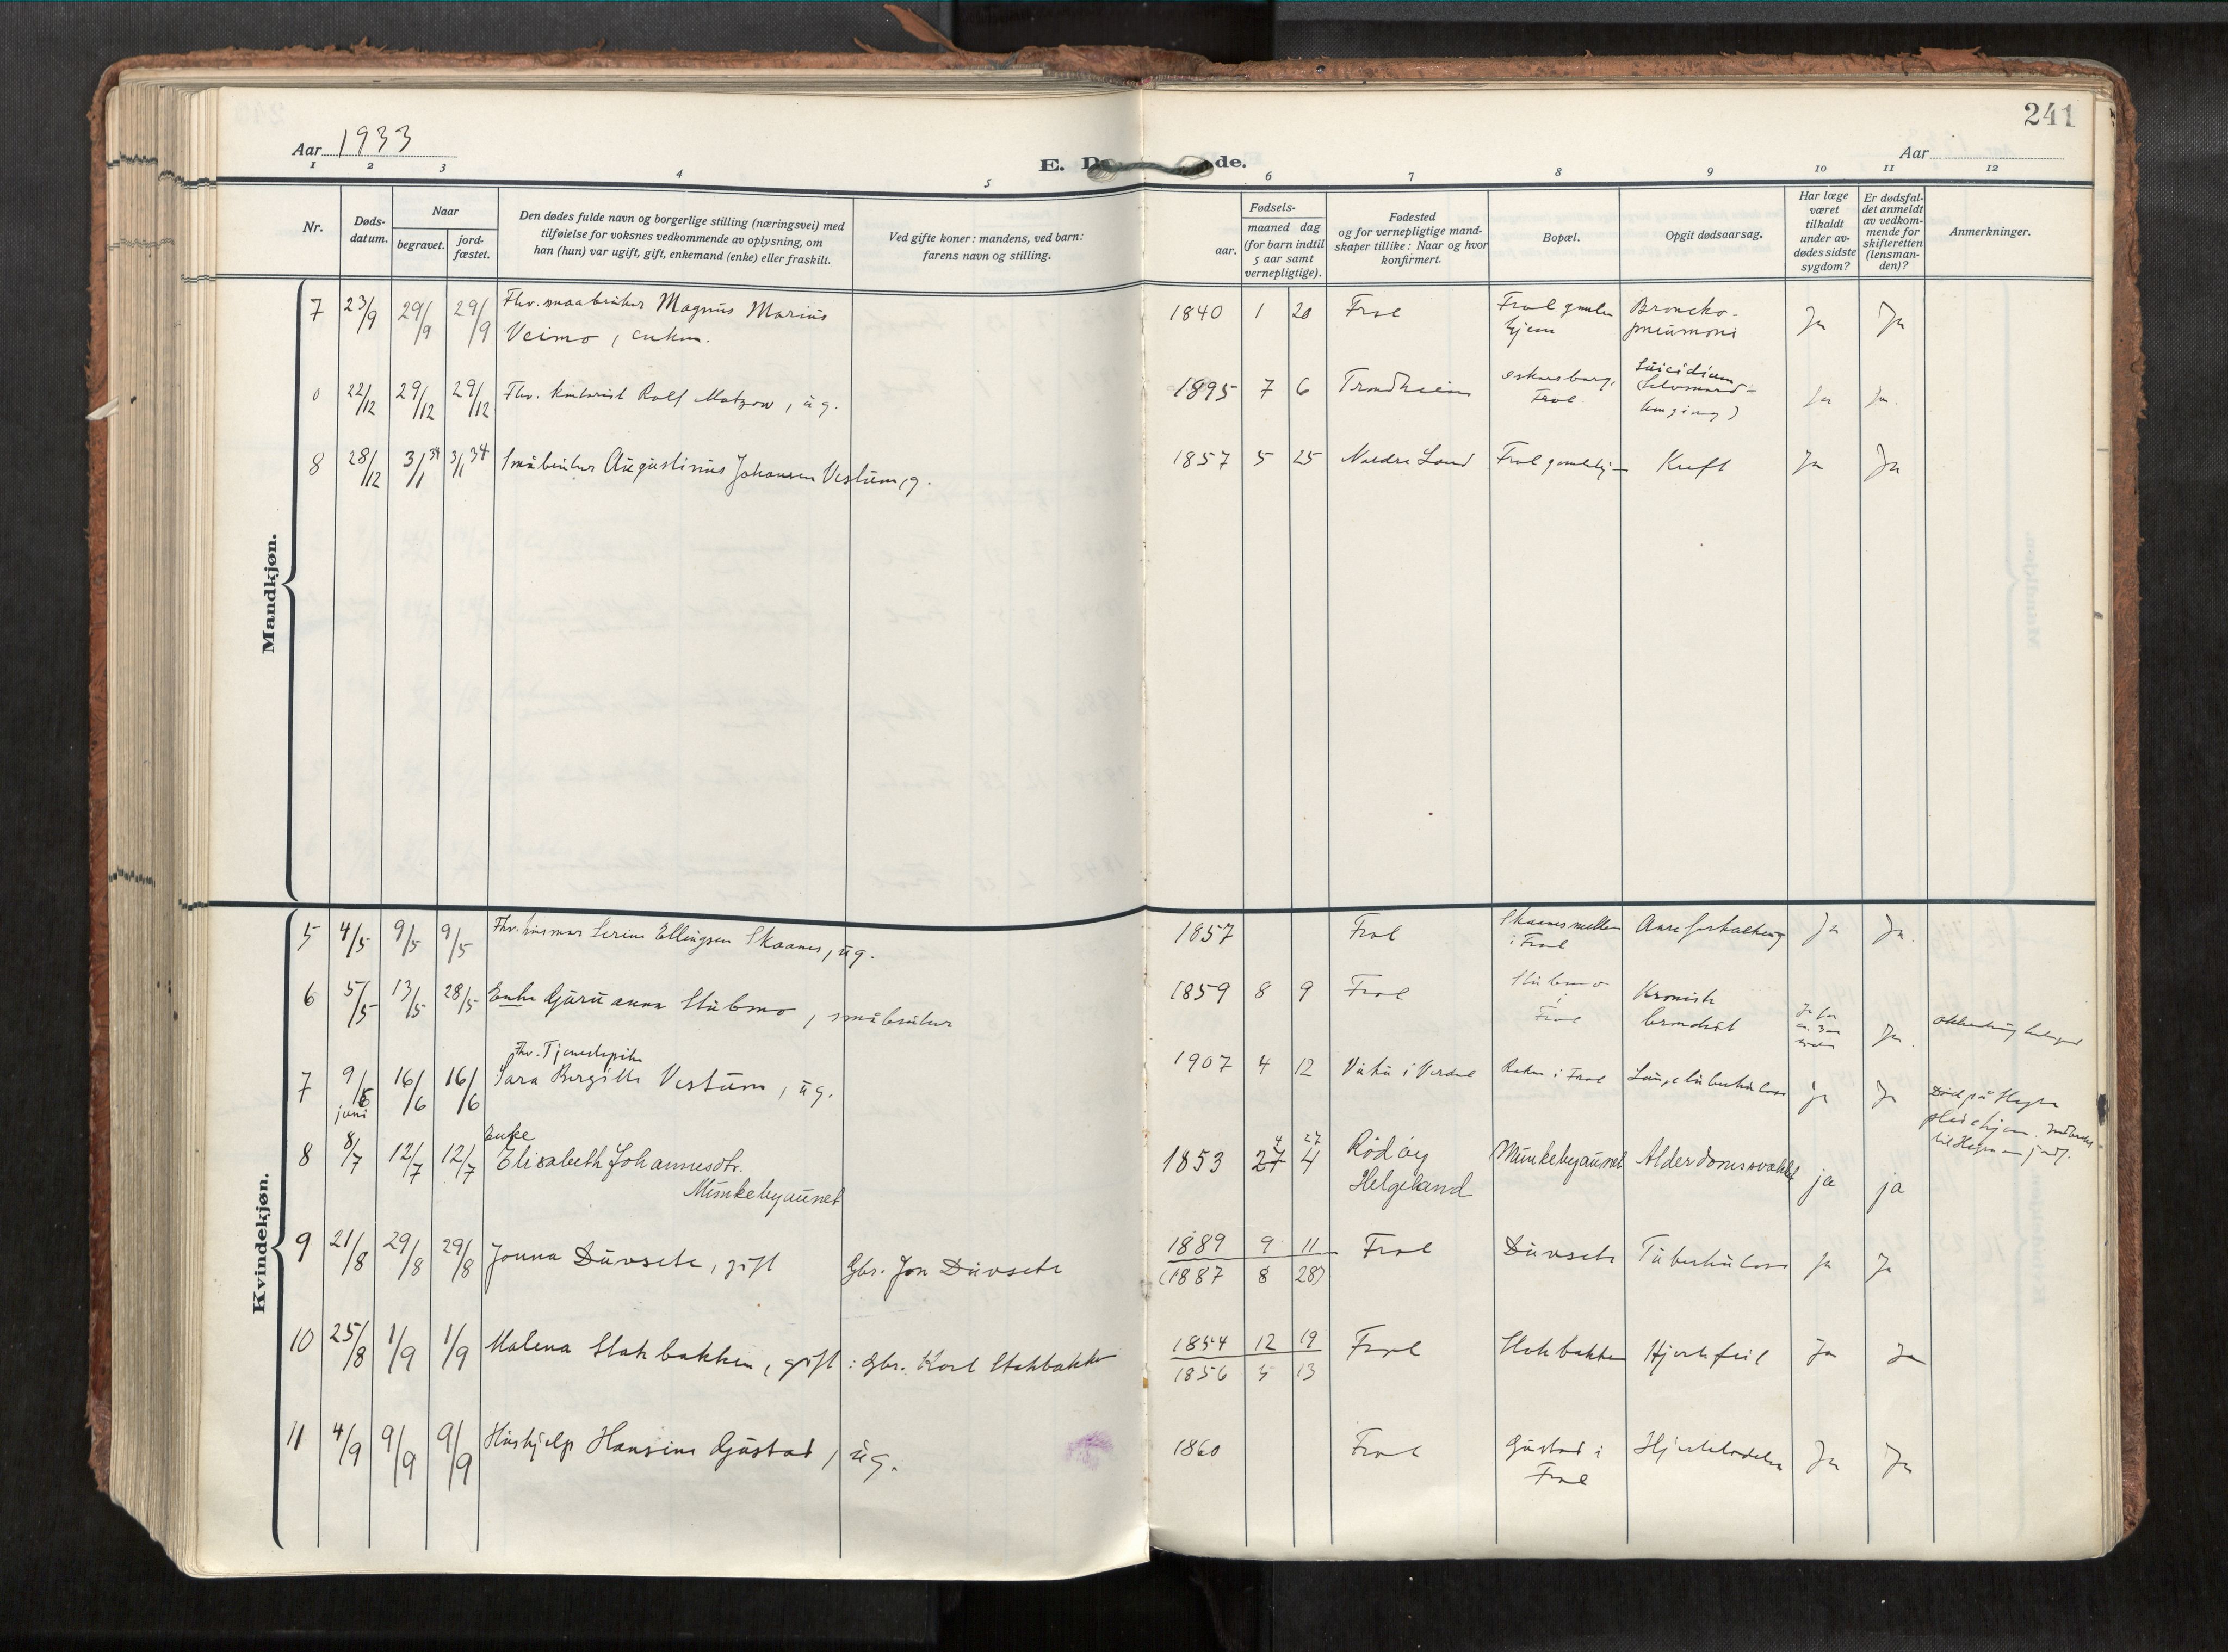 241
Aar 1933
E. D de.
Aar
1 2 3 4 5 6 7 8 9 10 11 12
Nr.
Døds-
datum.
Naar
begravet.
jord-
fæstet.
Den dødes fulde navn og borgerlige stilling (næringsvei) med
tilføielse for voksnes vedkommende av oplysning, om
han (hun) var ugift, gift, enkemand (enke) eller fraskilt.
Ved gifte koner: mandens, ved barn:
farens navn og stilling.
Fødsels-
aar.
maaned dag
(for barn indtil
5 aar samt
vernepligtige).
Fødested
og for vernepligtige mand-
skaper tillike: Naar og hvor
konfirmert.
Bopæl.
Opgit dødsaarsag.
Har læge
været
tilkaldt
under av-
dødes sidste
sygdom?
Er dødsfal-
det anmeldt
av vedkom-
mende for
skifteretten
(lensman-
den)?
Anmerkninger.
Mandkjøn.
7 23/9 29/9 29/9 Fhv. smaabruker Magnus Marius
Veimo, enkem.
1840 1 20 Frol Frol gamle
hjem
Broncko-
pneumoni
Ja Ja
0 22/12 29/12 29/12 Fhv. kontorist Rolf Matzow, ug.
1895 7 6 Trondheim
Frol.
Suicidium
Ja Ja.
8 28/12 3/1 34 3/1 34 Småbruker Augustinus Johansen Vestum, g.
1857 5 25 Nordre Land Frol gamlehj Kreft Ja Ja
Kvindekjøn.
5 4/5 9/5 9/5 Fhv. Serine Ellingsen Skaanes, ug.
1857 Frol
i Frol
Aareforkalkning Ja Ja.
6 5/5 13/5 28/5 Enke Guruanna Stubmo, småbruker
1859 8 9 Frol Stubmo
i
Frol
Kronisk
bronchit
Ja.
7 9/6 juni 16/6 16/6 Fhv. Tjenestepike
Sara Bergitte Vestum, ug.
1907 4 12 Vuku i Verdal i Frol Lungetuberkulose ja Ja
Død på Hegra
pleiehjem.
8 8/7 12/7 12/7 Enke
Elisabeth Johannesdtr.
Munkebyaunet
1853 4 27
27 4
Rödöy
Helgeland
Munkebyaunet Alderdomssvakhet ja ja
9 21/8 29/8 29/8 Jonna Duvsete, gift Gbr. Jon Duvsete
1889 9 11
(1887 8 28)
Frol Duvsete Tuberkulose Ja Ja
10 25/8 1/9 1/9 Malena Stokbakken, gift: Gbr. Karl Stokbakken
1854 12 19
1856 5 13
Frol Stokbakken Hjertefeil Ja Ja
11 4/9 9/9 9/9 Hushjelp Hansine Gustad, ug.
1860 Frol Gustad i
Frol
Ja Ja